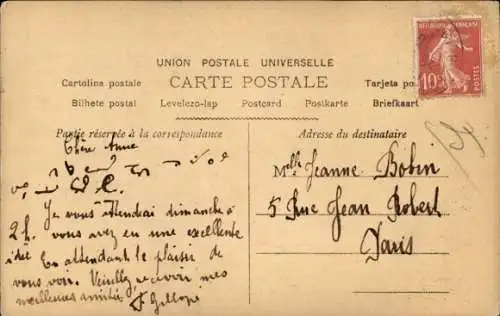 UNION POSTALE UNIVERSELLE
CARTE POSTALE
Cartolina postale
Tarjeta po
Bilhete postal Levelezo-lap Postcard Postkarte Briefkaart
Partie réservée à la correspondance
Adresse du destinataire
REPUBLIQUE FRANÇAISE
10
POSTES
Chère Amie
Je vous attendrai dimanche à
2 h. vous avez eu une excellente
idée En attendant le plaisir de
vous voir. Veuillez recevoir mes
meilleures amitiés
Melle Jeanne Bobin
5 Rue Jean Robert
Paris